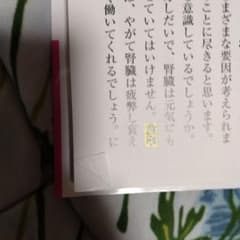 まざまな要因が考えられま
ことに尽きると思います。
意識しているでしょうか。
しだいで、腎臓は元気でも
ていてはいけません。
、やがて腎臓は疲弊し衰え
働いてくれるでしょう。に